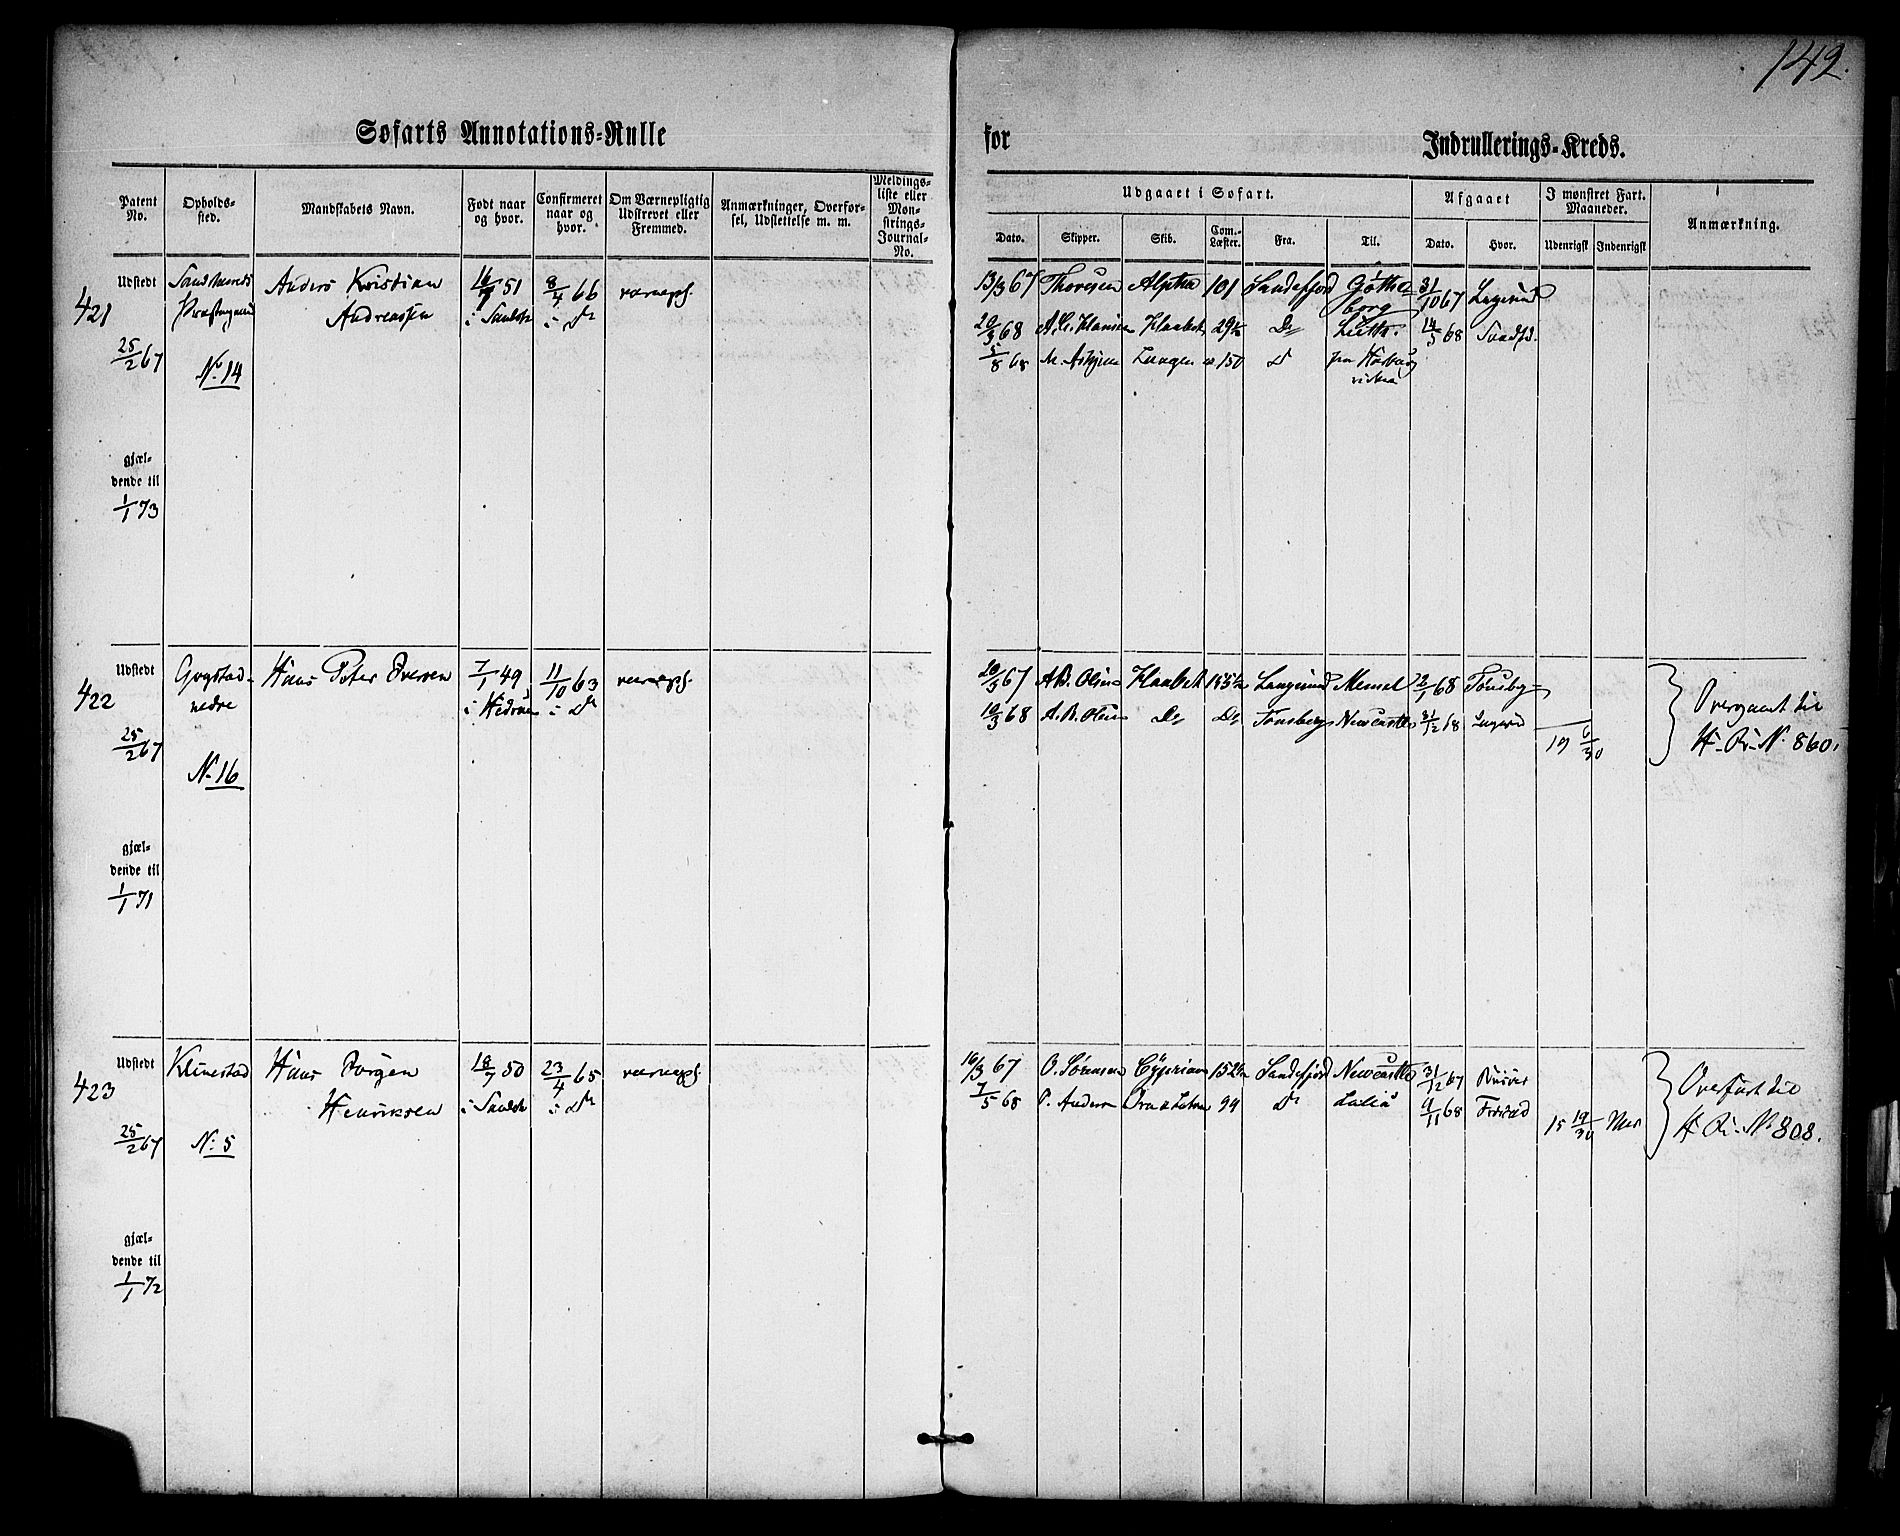 142.
Søfarts Annotations-Rulle for Indrullerings-Kreds.
Patent No. Opholds-sted. Mandskabets Navn. Født naar og hvor. Confirmeret naar og hvor. Om Værnepligtig Udskrevet eller Fremmed. Anmærkninger, Overførsel, Udslettelse m. m. Meldings-liste eller Mønstrings-Journal-No.
Udgaaet i Søfart. Afgaaet I mønstret Fart. Maaneder. Anmærkning.
Dato. Skipper. Skib. Com.-Læster. Fra. Til. Dato. Hvor. Udenrigsk Indenrigsk
Udstedt
421
25/2 67
No 14
Anders Kristian
Andreassen
16/9 51
8/4 66
værnepl.
i Do
13/3 67 Thoresen Alpha 101 Sandefjord Gøthe-
borg 31/10 67 Langesund
20/3 68 A. C. Hansen Haabet 29½ Do 14/5 68
5/8 68 M. 150 Do fra
gjæl-
dende til
1/1 73
Udstedt
422
25/2 67
Gogstad
nedre
No 16
Hans Peter Iversen
7/1 49
11/10 63
i Do
værnepl.
20/3 67 A. B. Olsen Haabet Langesund Memel 2/1 68 Tønsbg
10/3 68 A. B. Olsen Do Do Tønsberg Newcastle 31/12 68
19 6/30
Overgaaet til
H. R. No 860.
gjæl-
dende til
1/1 71
Udstedt
423
25/2 67
Klinestad
No 5
Hans Jørgen
Henriksen
18/7 50
23/4 65
i Do
værnepl.
16/3 67 O. Sørensen Cyprian 152½ Sandefjord Newcastle 31/12 67
7/5 68 P. Anders 99 Do 9/11 68
15 19/30 Mdr
Overført til
H. R. No 808.
gjæl-
dende til
1/1 72